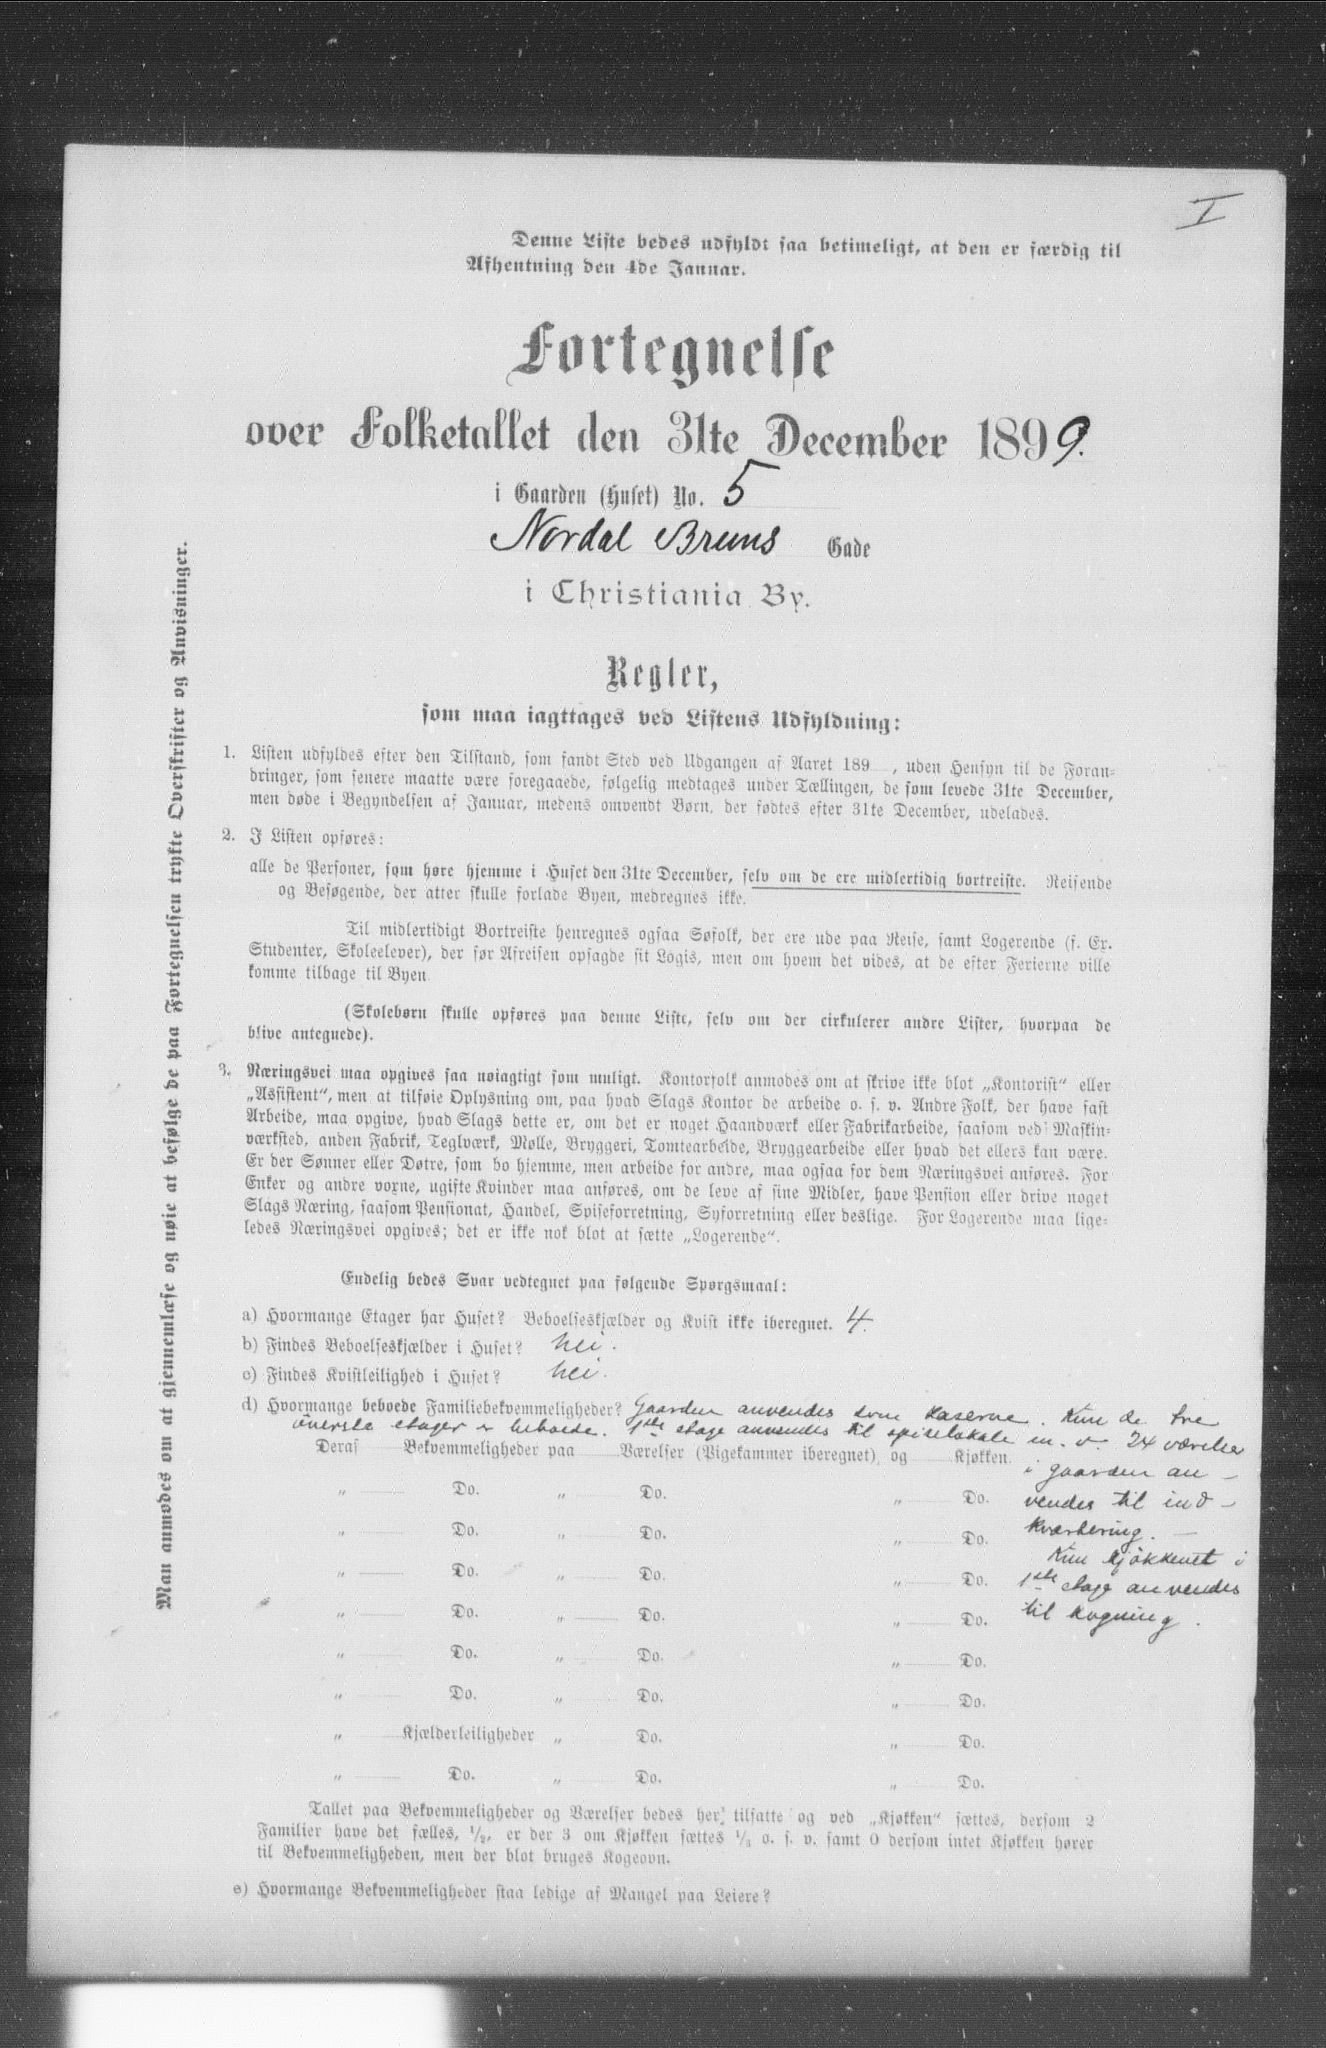 I
Denne Liste bedes udfyldt saa betimeligt, at den er færdig til
Afhentning den 4de Januar.
Fortegnelse
over Folketallet den 31te December 1899.
i Gaarden (Huset) No. 5
Nordal Bruns Gade
i Christiania By.
Regler,
som maa iagttages ved Listens Udfyldning:
1. Listen udfyldes efter den Tilstand, som fandt Sted ved Udgangen af Aaret 189 , uden Hensyn til de Foran-
dringer, som senere maatte være foregaaede, følgelig medtages under Tællingen, de som levede 31te December,
men døde i Begyndelsen af Januar, medens omvendt Børn, der fødtes efter 31te December, udelades.
2. I Listen opføres:
alle de Personer, som høre hjemme i Huset den 31te December, selv om de ere midlertidig bortreiste. Reisende
og Besøgende, der atter skulle forlade Byen, medregnes ikke.
Til midlertidigt Bortreiste henregnes ogsaa Søfolk, der ere ude paa Reise, samt Logerende (f. Ex.
Studenter, Skoleelever), der før Afreisen opsagde sit Logis, men om hvem det vides, at de efter Ferierne ville
komme tilbage til Byen.
(Skolebørn skulle opføres paa denne Liste, selv om der cirkulerer andre Lister, hvorpaa de
blive antegnede).
3. Næringsvei maa opgives saa nøiagtigt som muligt. Kontorfolk anmodes om at skrive ikke blot „Kontorist“ eller
„Assistent“, men at tilføie Oplysning om, paa hvad Slags Kontor de arbeide o. s. v. Andre Folk, der have fast
Arbeide, maa opgive, hvad Slags dette er, om det er noget Haandværk eller Fabrikarbeide, saasom ved Maskin-
værksted, anden Fabrik, Teglværk, Mølle, Bryggeri, Tomtearbeide, Bryggearbeide eller hvad det ellers kan være.
Er der Sønner eller Døtre, som bo hjemme, men arbeide for andre, maa ogsaa for dem Næringsvei anføres. For
Enker og andre voxne, ugifte Kvinder maa anføres, om de leve af sine Midler, have Pension eller drive noget
Slags Næring, saasom Pensionat, Handel, Spiseforretning, Syforretning eller deslige. For Logerende maa lige-
ledes Næringsvei opgives; det er ikke nok blot at sætte „Logerende“.
Endelig bedes Svar vedtegnet paa følgende Spørgsmaal:
a) Hvormange Etager har Huset? Beboelseskjælder og Kvist ikke iberegnet. 4.
b) Findes Beboelseskjælder i Huset? nei.
c) Findes Kvistleilighed i Huset? nei.
d) Hvormange beboede Familiebekvemmeligheder? Gaarden anvendes som kaserne. Kun de tre
överste etager er beboede. 1ste etage anvendes til spiselokale m. v. 24 værelser
Deraf Bekvemmeligheder paa Værelser (Pigekammer iberegnet), og Kjøkken. i gaarden an-
„ Do. „ Do. „ Do. vendes til ind-
„ Do. „ Do. „ Do. kvartering. —
Kun kjökkenet i
„ Do. „ Do. „ Do. 1ste etage anvendes
„ Do. „ Do. „ Do. til kogning.
„ Do. „ Do. „ Do.
„ Do. „ Do. „ Do.
„ Kjælderleiligheder „ Do. „ Do.
„ Do. „ Do. „ Do.
Tallet paa Bekvemmeligheder og Værelser bedes her tilsatte og ved „Kjøkken“ sættes, dersom 2
Familier have det fælles, 1/2, er der 3 om Kjøkken sættes 1/3 o. s. v. samt 0 dersom intet Kjøkken hører
til Bekvemmeligheden, men der blot bruges Kogeovn.
e) Hvormange Bekvemmeligheder staa ledige af Mangel paa Leiere?
Man anmodes om at gjennemlæse og nøie at befølge de paa Fortegnelsen trykte Overskrifter og Anvisninger.